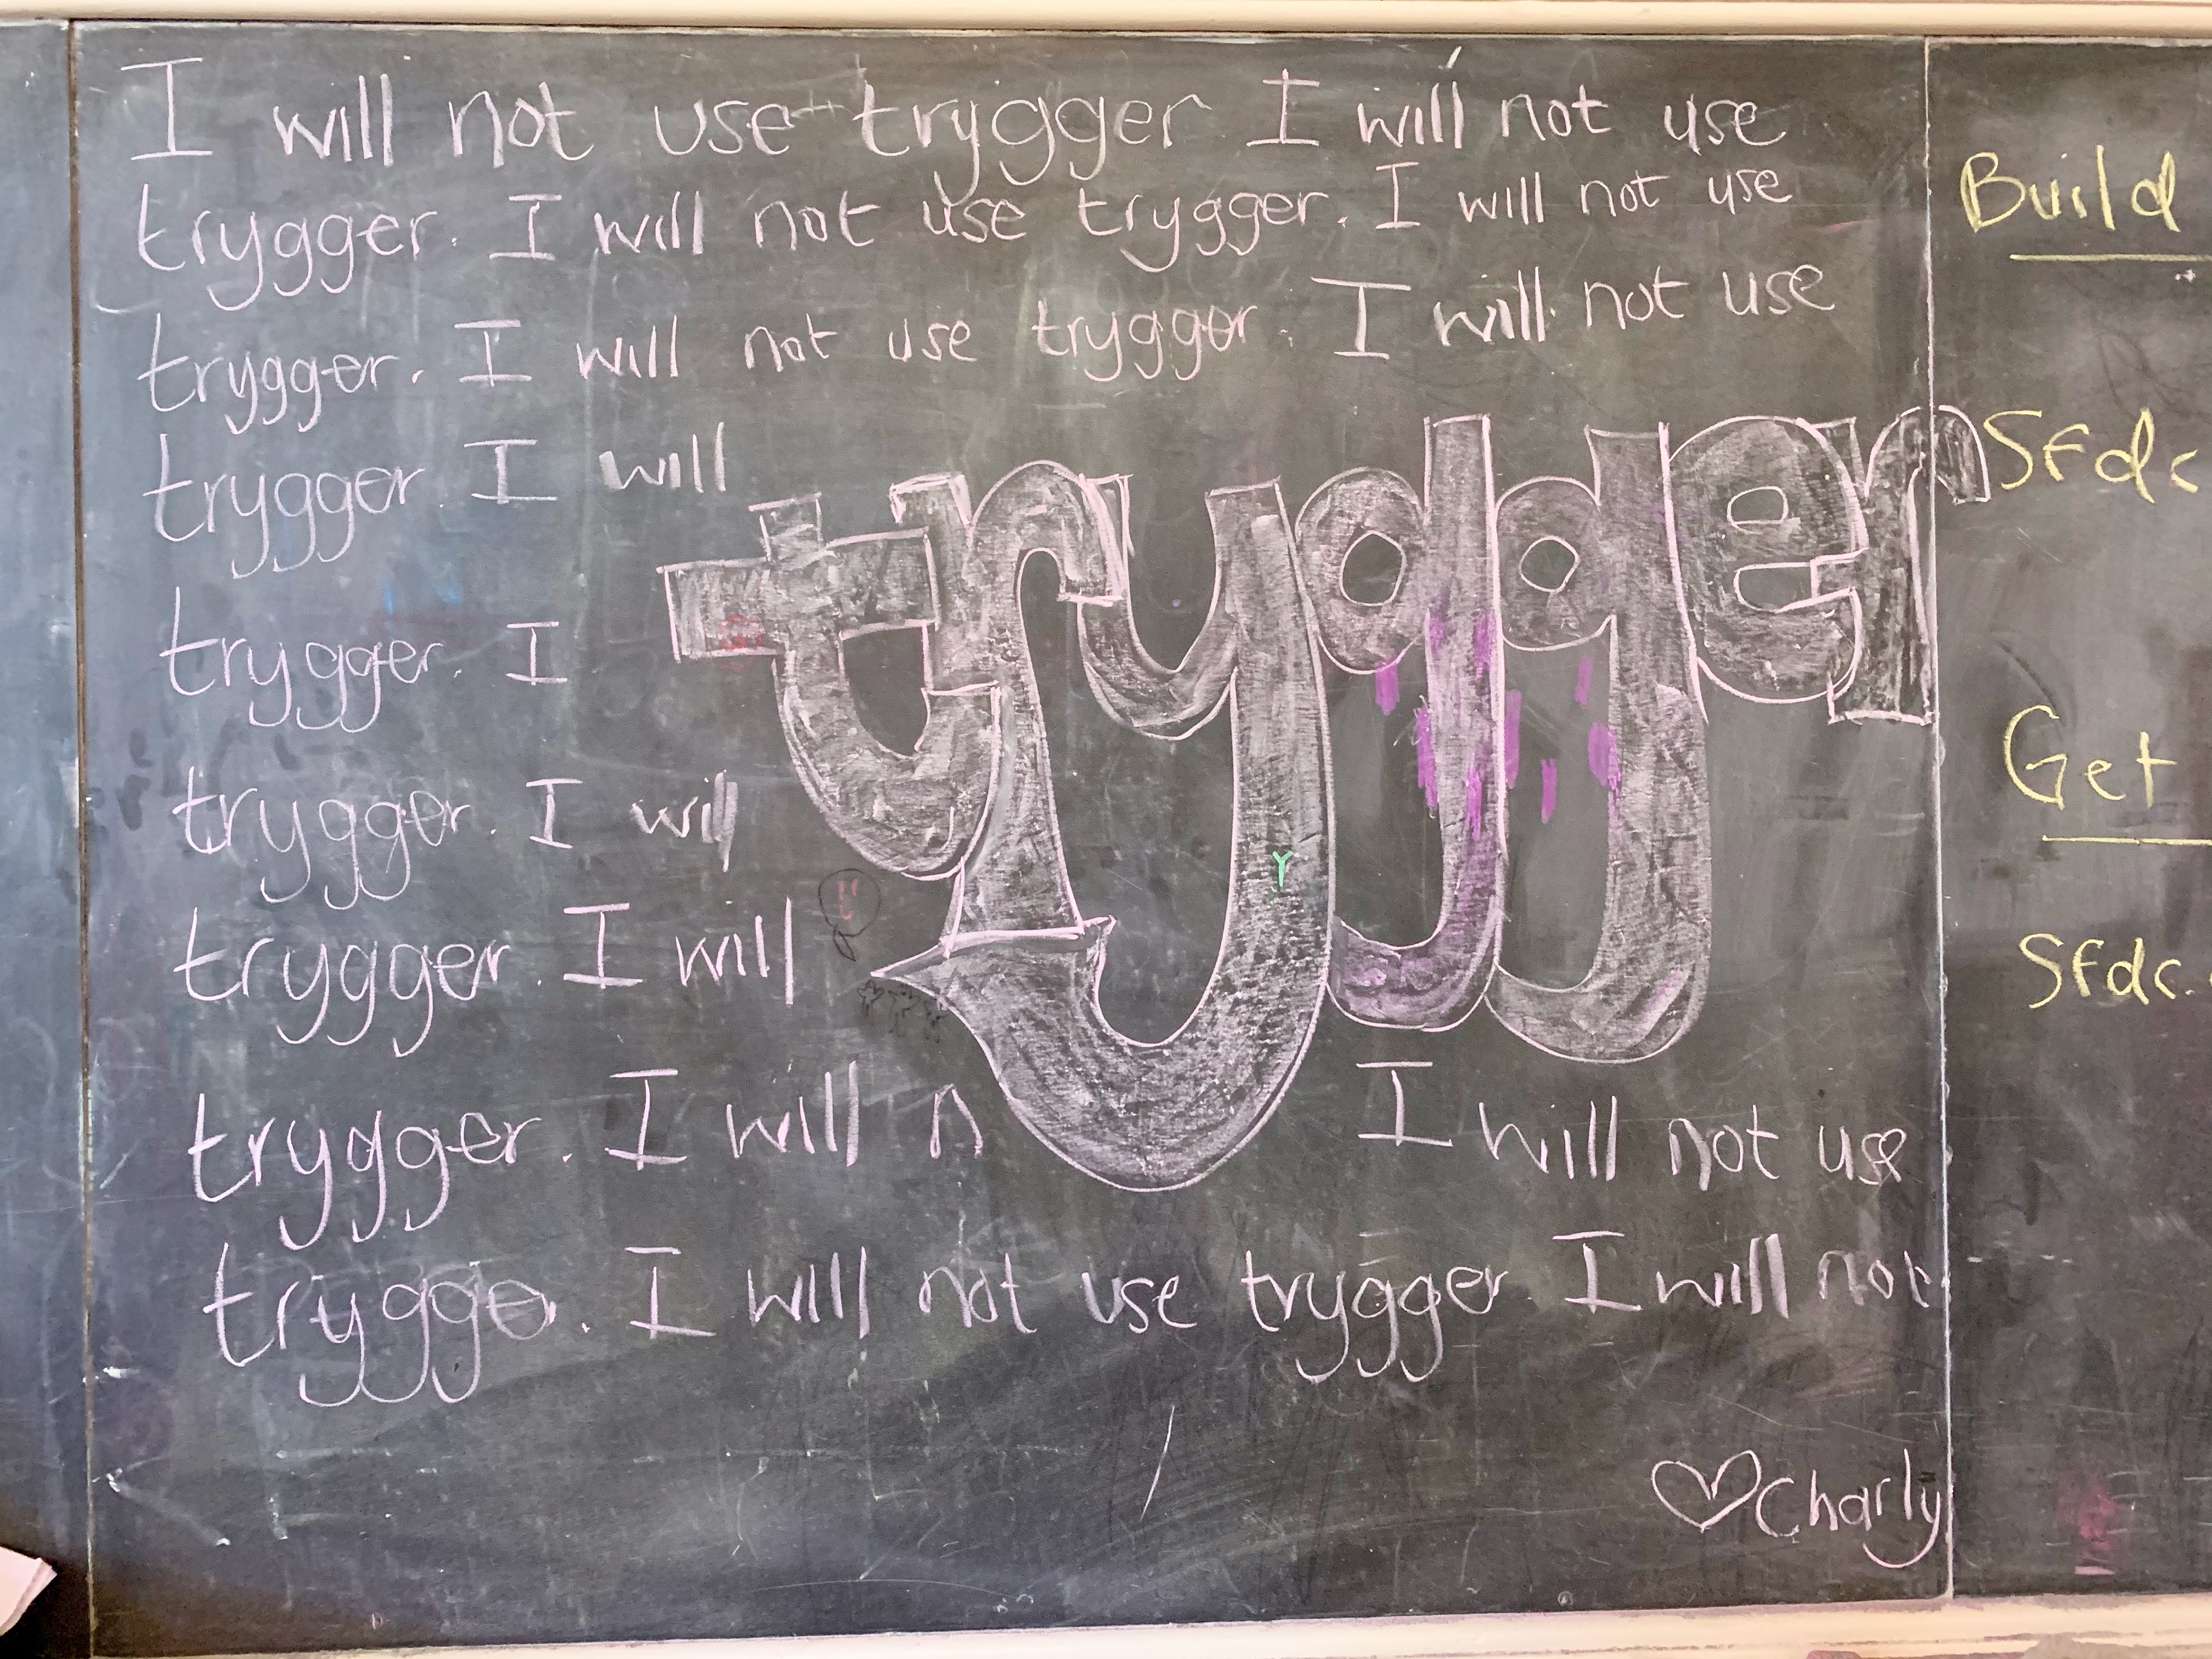 I will not use trygger I will not use
trygger. I will not use trygger. I will not use
trygger. I will not use trygger. I will not use
trygger I will
trygger
trygger. I
trygger. I will
trygger. I will
Y
trygger. I will n I will not use
trygge. I will not use trygger I will not
Charly
Build
Sfdc
Get
Sfdc.